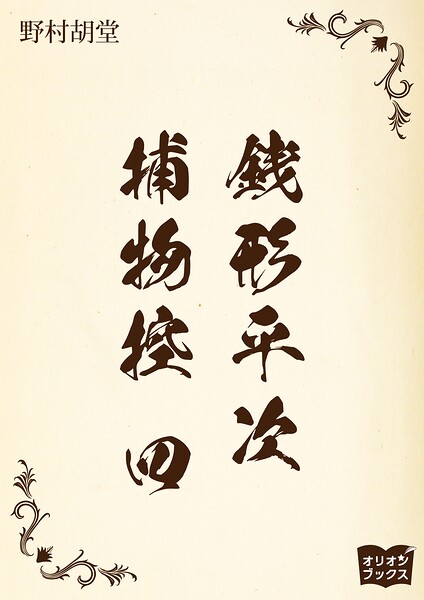 野村胡堂
銭形平次
捕物控 四
オリオン
ブックス